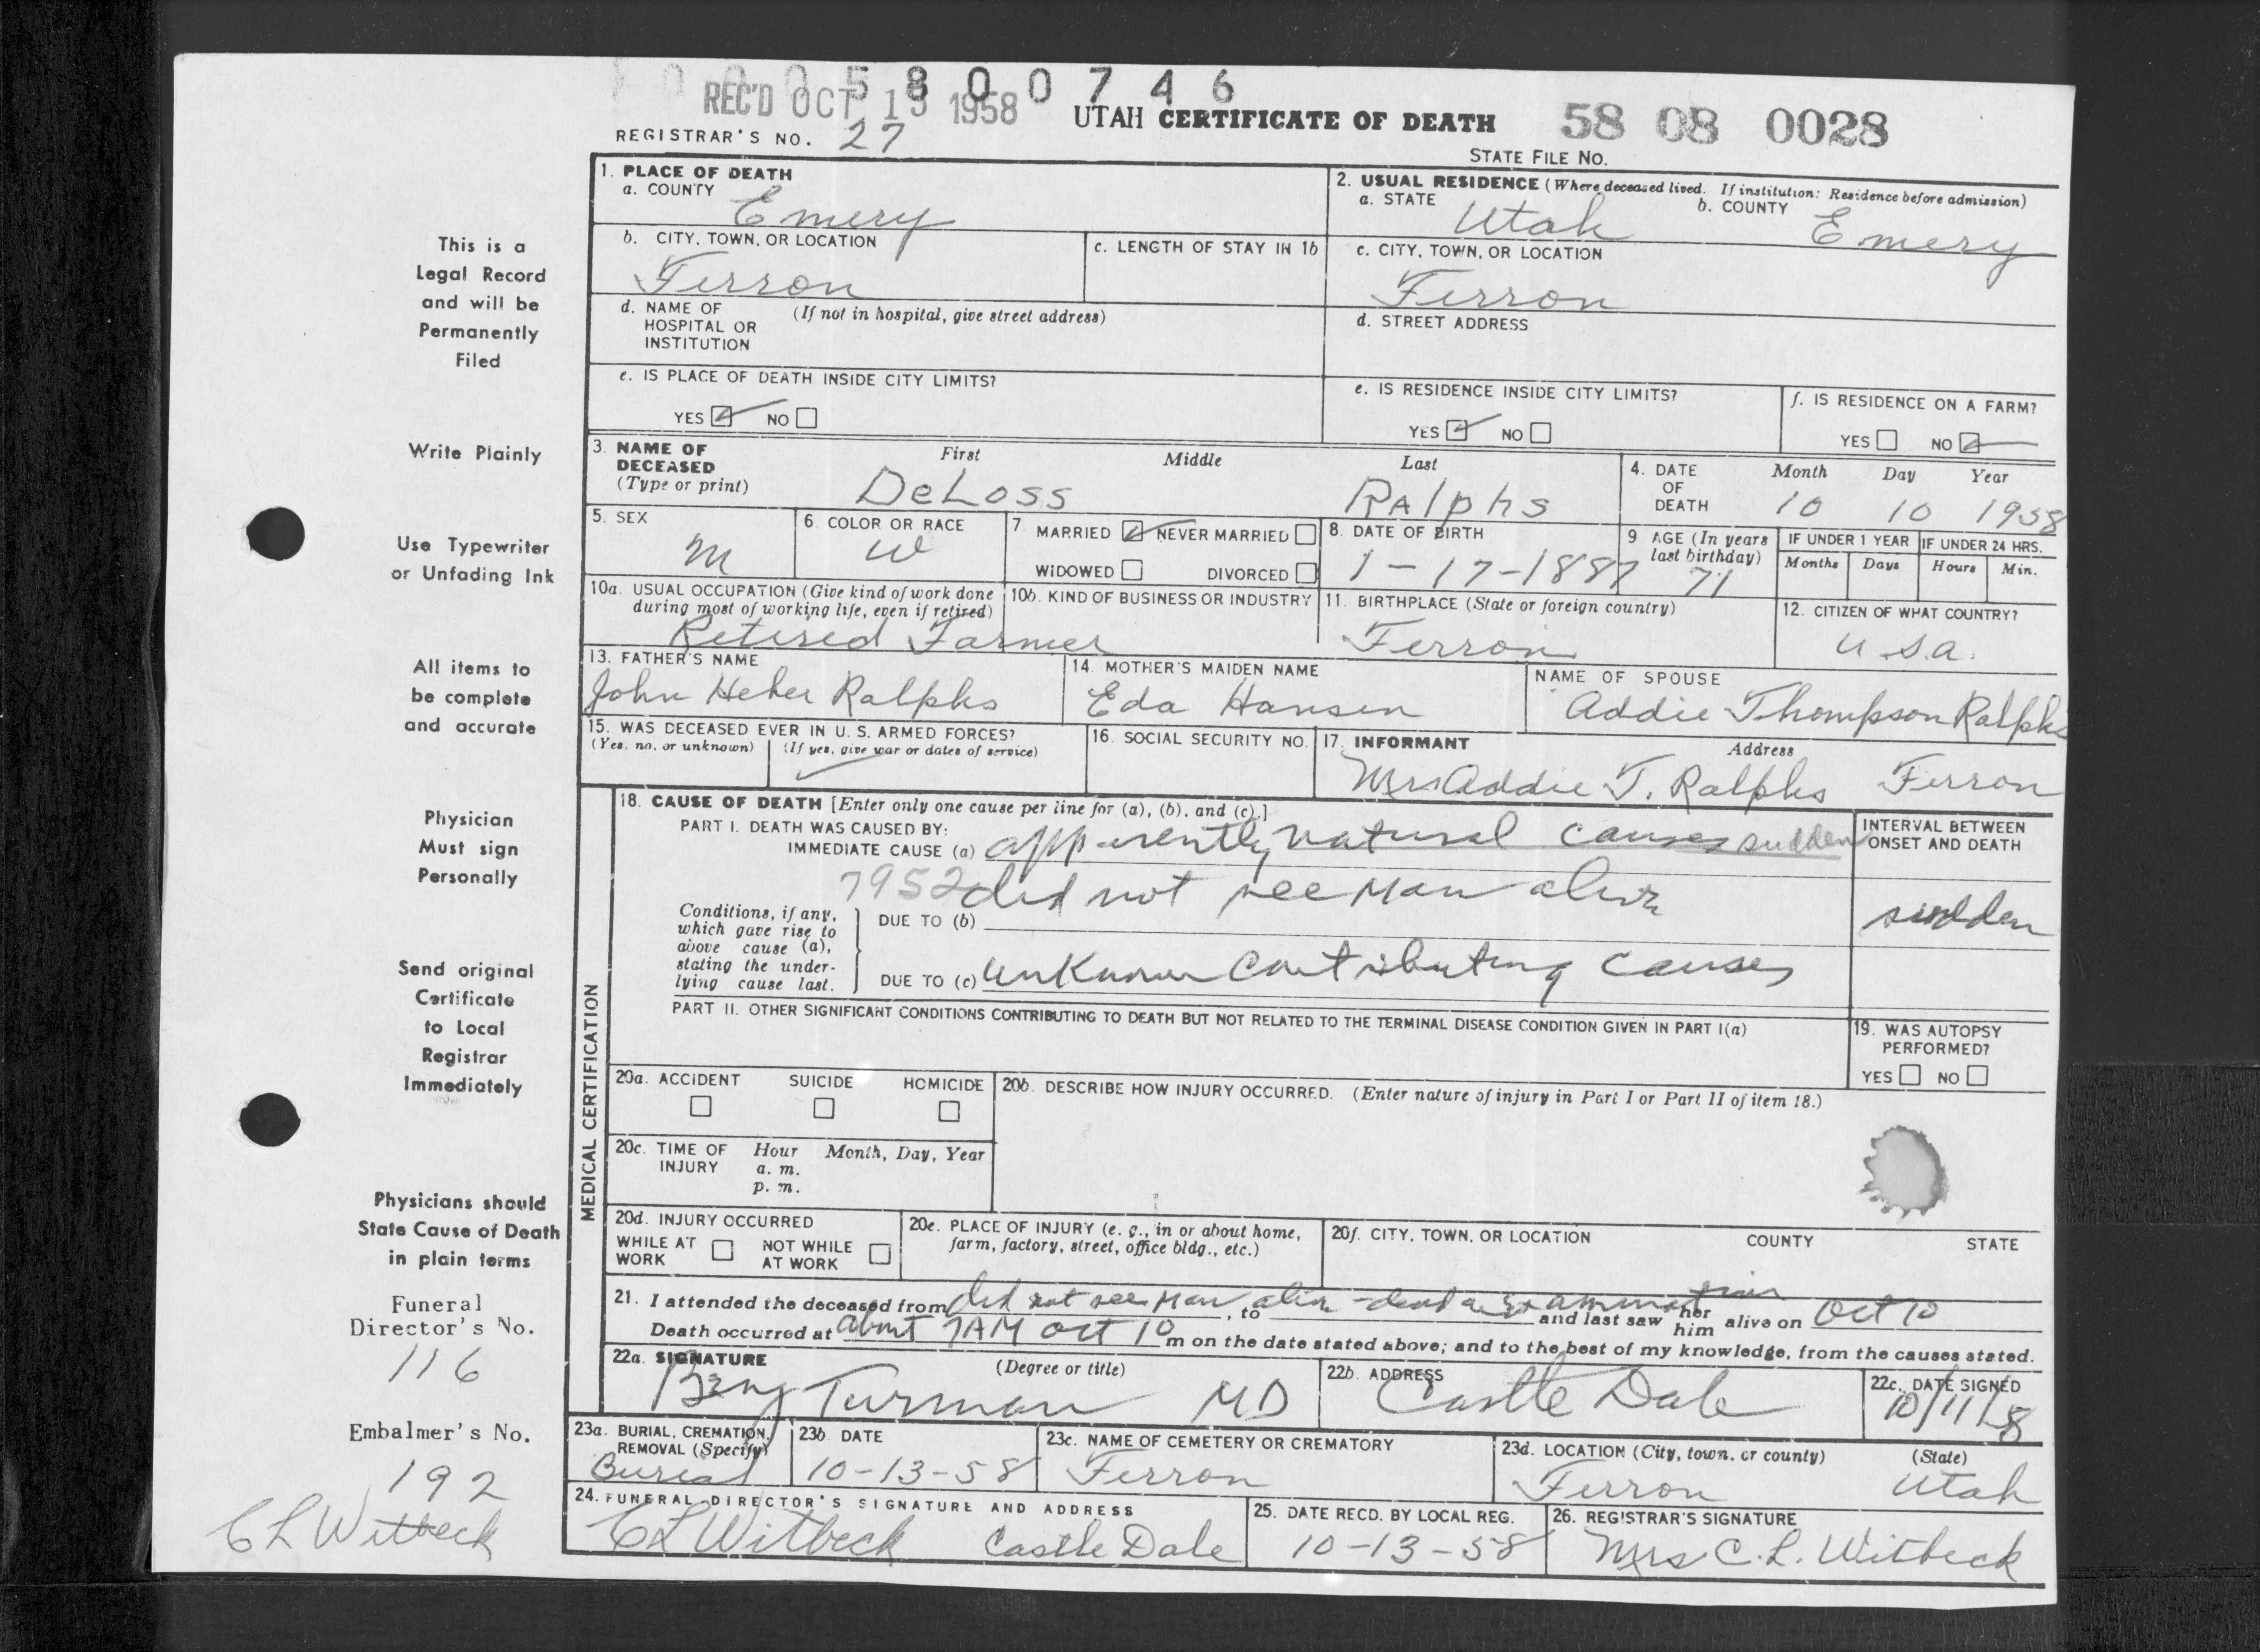 0 0 0 5 8 0 0 7 4 6
REC'D OCT 13 1958
UTAH CERTIFICATE OF DEATH 58 08 0028
REGISTRAR'S NO. 27
STATE FILE NO.
1. PLACE OF DEATH
a. COUNTY Emery
2. USUAL RESIDENCE (Where deceased lived. If institution: Residence before admission)
a. STATE Utah b. COUNTY Emery
b. CITY, TOWN, OR LOCATION Ferron
c. LENGTH OF STAY IN 1b
c. CITY, TOWN, OR LOCATION Ferron
d. NAME OF HOSPITAL OR INSTITUTION (If not in hospital, give street address)
d. STREET ADDRESS
e. IS PLACE OF DEATH INSIDE CITY LIMITS?
YES NO
e. IS RESIDENCE INSIDE CITY LIMITS?
YES NO
f. IS RESIDENCE ON A FARM?
YES NO
3. NAME OF DECEASED (Type or print)
First Middle Last
DeLoss Ralphs
4. DATE OF DEATH
Month Day Year
10 10 1958
5. SEX
M
6. COLOR OR RACE
W
7 MARRIED NEVER MARRIED
WIDOWED DIVORCED
8. DATE OF BIRTH
1-17-1887
9 AGE (In years last birthday)
71
IF UNDER 1 YEAR
Months Days
IF UNDER 24 HRS.
Hours Min.
10a. USUAL OCCUPATION (Give kind of work done during most of working life, even if retired)
Retired Farmer
10b. KIND OF BUSINESS OR INDUSTRY
11. BIRTHPLACE (State or foreign country)
Ferron
12. CITIZEN OF WHAT COUNTRY?
U.S.A.
13. FATHER'S NAME
John Heber Ralphs
14. MOTHER'S MAIDEN NAME
Eda Hansen
NAME OF SPOUSE
Addie Thompson Ralphs
15. WAS DECEASED EVER IN U.S. ARMED FORCES?
(Yes, no, or unknown) (If yes, give war or dates of service)
16. SOCIAL SECURITY NO.
17. INFORMANT Address
Mrs Addie T. Ralphs Ferron
MEDICAL CERTIFICATION
18. CAUSE OF DEATH [Enter only one cause per line for (a), (b), and (c).]
PART I. DEATH WAS CAUSED BY:
IMMEDIATE CAUSE (a) apparently natural causes sudden
INTERVAL BETWEEN ONSET AND DEATH
7952 did not see man alive
Conditions, if any, which gave rise to above cause (a), stating the underlying cause last.
DUE TO (b)
sudden
DUE TO (c) unknown contributing causes
PART II. OTHER SIGNIFICANT CONDITIONS CONTRIBUTING TO DEATH BUT NOT RELATED TO THE TERMINAL DISEASE CONDITION GIVEN IN PART I(a)
19. WAS AUTOPSY PERFORMED?
YES NO
20a. ACCIDENT SUICIDE HOMICIDE
20b. DESCRIBE HOW INJURY OCCURRED. (Enter nature of injury in Part I or Part II of item 18.)
20c. TIME OF INJURY Hour Month, Day, Year
a. m.
p. m.
20d. INJURY OCCURRED
WHILE AT WORK NOT WHILE AT WORK
20e. PLACE OF INJURY (e. g., in or about home, farm, factory, street, office bldg., etc.)
20f. CITY, TOWN, OR LOCATION COUNTY STATE
21. I attended the deceased from did not see man, to alive - dead examination and last saw her him alive on Oct 10
Death occurred at about 7AM Oct 10 m on the date stated above; and to the best of my knowledge, from the causes stated.
22a. SIGNATURE (Degree or title)
Turman MD
22b. ADDRESS
Castle Dale
22c. DATE SIGNED
10/11/58
23a. BURIAL, CREMATION, REMOVAL (Specify)
Burial
23b. DATE
10-13-58
23c. NAME OF CEMETERY OR CREMATORY
Ferron
23d. LOCATION (City, town, or county) (State)
Ferron Utah
24. FUNERAL DIRECTOR'S SIGNATURE AND ADDRESS
C L Witbeck Castle Dale
25. DATE RECD. BY LOCAL REG.
10-13-58
26. REGISTRAR'S SIGNATURE
Mrs C. L. Witbeck
This is a
Legal Record
and will be
Permanently
Filed
Write Plainly
Use Typewriter
or Unfading Ink
All items to
be complete
and accurate
Physician
Must sign
Personally
Send original
Certificate
to Local
Registrar
Immediately
Physicians should
State Cause of Death
in plain terms
Funeral
Director's No.
116
Embalmer's No.
192
C L Witbeck